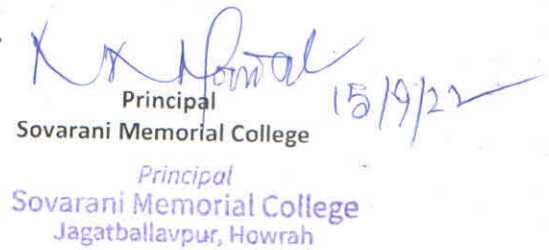 15/9/22
Principal
Sovarani Memorial College
Principal
Sovarani Memorial College
Jagatballavpur, Howrah